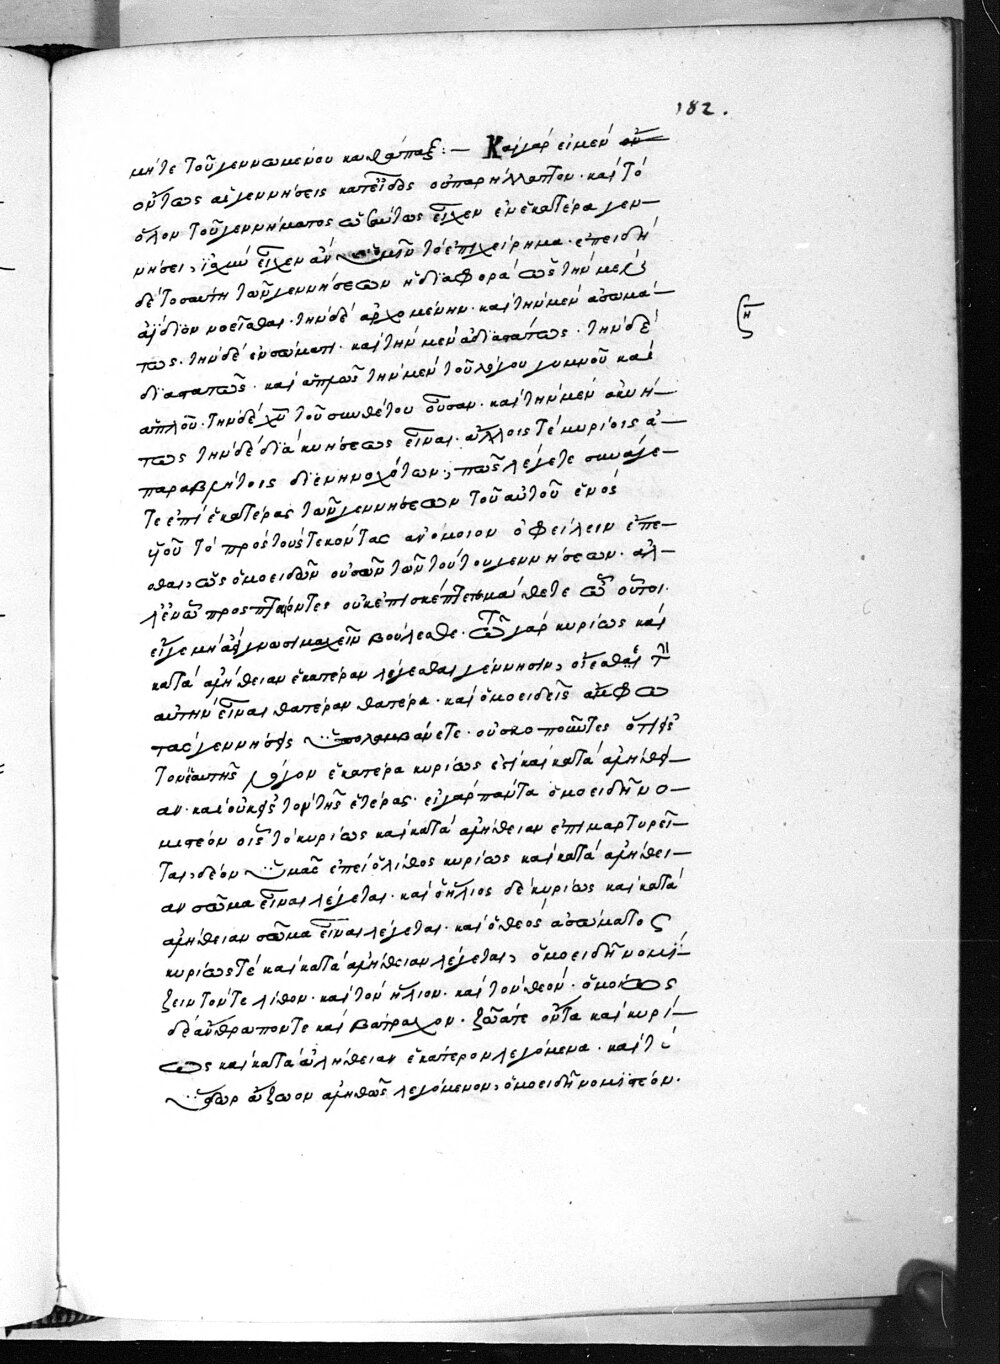 182.
μήτε τοῦ γεννωμένου καθάπαξ :— Καὶ γὰρ εἰ μὲν
ὄντως αἱ γεννήσεις κατ' εἶδος οὐ παρήλλαττον· καὶ τὸ
ὅλον τοῦ γεννήματος οὕτως εἶχεν ἐν ἑκατέρα γεν-
νήσει, ἰσχὺν εἶχεν ἂν ὑμῖν τὸ ἐπιχείρημα· ἐπειδὴ
δὲ τοσαύτη τῶν γεννήσεων ἡ διαφορὰ ὡς τὴν μὲν
ἀΐδιον νοεῖσθαι· τὴν δὲ ἀρχομένην· καὶ τὴν μὲν ἀσωμά-
τως· τὴν δὲ ἐν σώματι· καὶ τὴν μὲν ἀδιαστάτως· τὴν δὲ
διαστατῶς· καὶ ἁπλῶς τὴν μὲν τοῦ λόγου γυμνοῦ καὶ
ἁπλοῦ· τὴν δὲ τοῦ συνθέτου οὖσαν· καὶ τὴν μὲν ἀκινή-
τως τὴν δὲ διὰ κινήσεως εἶναι· ἄλλοις τὲ μυρίοις ἀ-
παραβλήτοις διενηνοχότων, πῶς λέγετε συνάγε-
τε ἐπὶ ἑκατέρας τῶν γεννήσεων τοῦ αὐτοῦ ἑνὸς
υἱοῦ τὸ πρὸς τοὺς τεκόντας ἀνόμοιον ὀφείλειν ἕπε-
σθαι, ὡς ὁμοειδῶν οὐσῶν τῶν τούτου γεννήσεων· ἀλ-
προσπταίοντες οὐκ ἐπισκέπτεσθε οὗτοι·
εἴγε μὴ βούλεσθε· γὰρ κυρίως καὶ
κατὰ ἀλήθειαν ἑκατέραν λέγεσθαι γέννησιν, οἴεσθαι
αὐτὴν εἶναι θατέραν θατέρα· καὶ ὁμοειδεῖς ἄμφω
τὰς γεννήσεις ὑπολαμβάνετε· οὐ σκοποῦντες
τὸν ἑαυτῆς λόγον ἑκατέρα κυρίως ἐστὶ καὶ κατὰ ἀλήθει-
αν· καὶ οὐκ εἰς τὸν τῆς ἑτέρας· εἰ γὰρ πάντα ὁμοειδῆ νο-
μιστέον οἷς τὸ κυρίως καὶ κατὰ ἀλήθειαν ἐπιμαρτυρεῖ-
ται, δέον ὑμᾶς ἐπεὶ ὁ λίθος κυρίως καὶ κατὰ ἀλήθει-
αν σῶμα εἶναι λέγεται· καὶ ὁ ἥλιος δὲ κυρίως καὶ κατὰ
ἀλήθειαν σῶμα εἶναι λέγεται· καὶ ὁ θεὸς ἀσώματος
κυρίως τὲ καὶ κατὰ ἀλήθειαν λέγεται, ὁμοειδῆ νομί-
ζειν τόν τε λίθον· καὶ τὸν ἥλιον· καὶ τὸν θεόν· ὁμοίως
δὲ ἄνθρωπόν τε καὶ βάτραχον· ζῶά τε ὄντα καὶ κυρί-
ως καὶ κατὰ ἀλήθειαν ἑκάτερον λεγόμενα· καὶ τὸ
ὕδωρ ἄζωον ἀληθῶς λεγόμενον, ὁμοειδῆ νομιστέον.